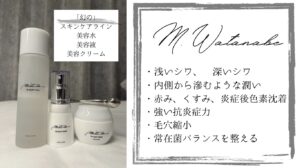 「幻の」
スキンケアライン
美容水
美容液
美容クリーム
M Watanabe
・浅いシワ、 深いシワ
・内側から滲むような潤い
・赤み、くすみ、炎症後色素沈着
・強い抗炎症力
・毛穴縮小
・常在菌バランスを整える